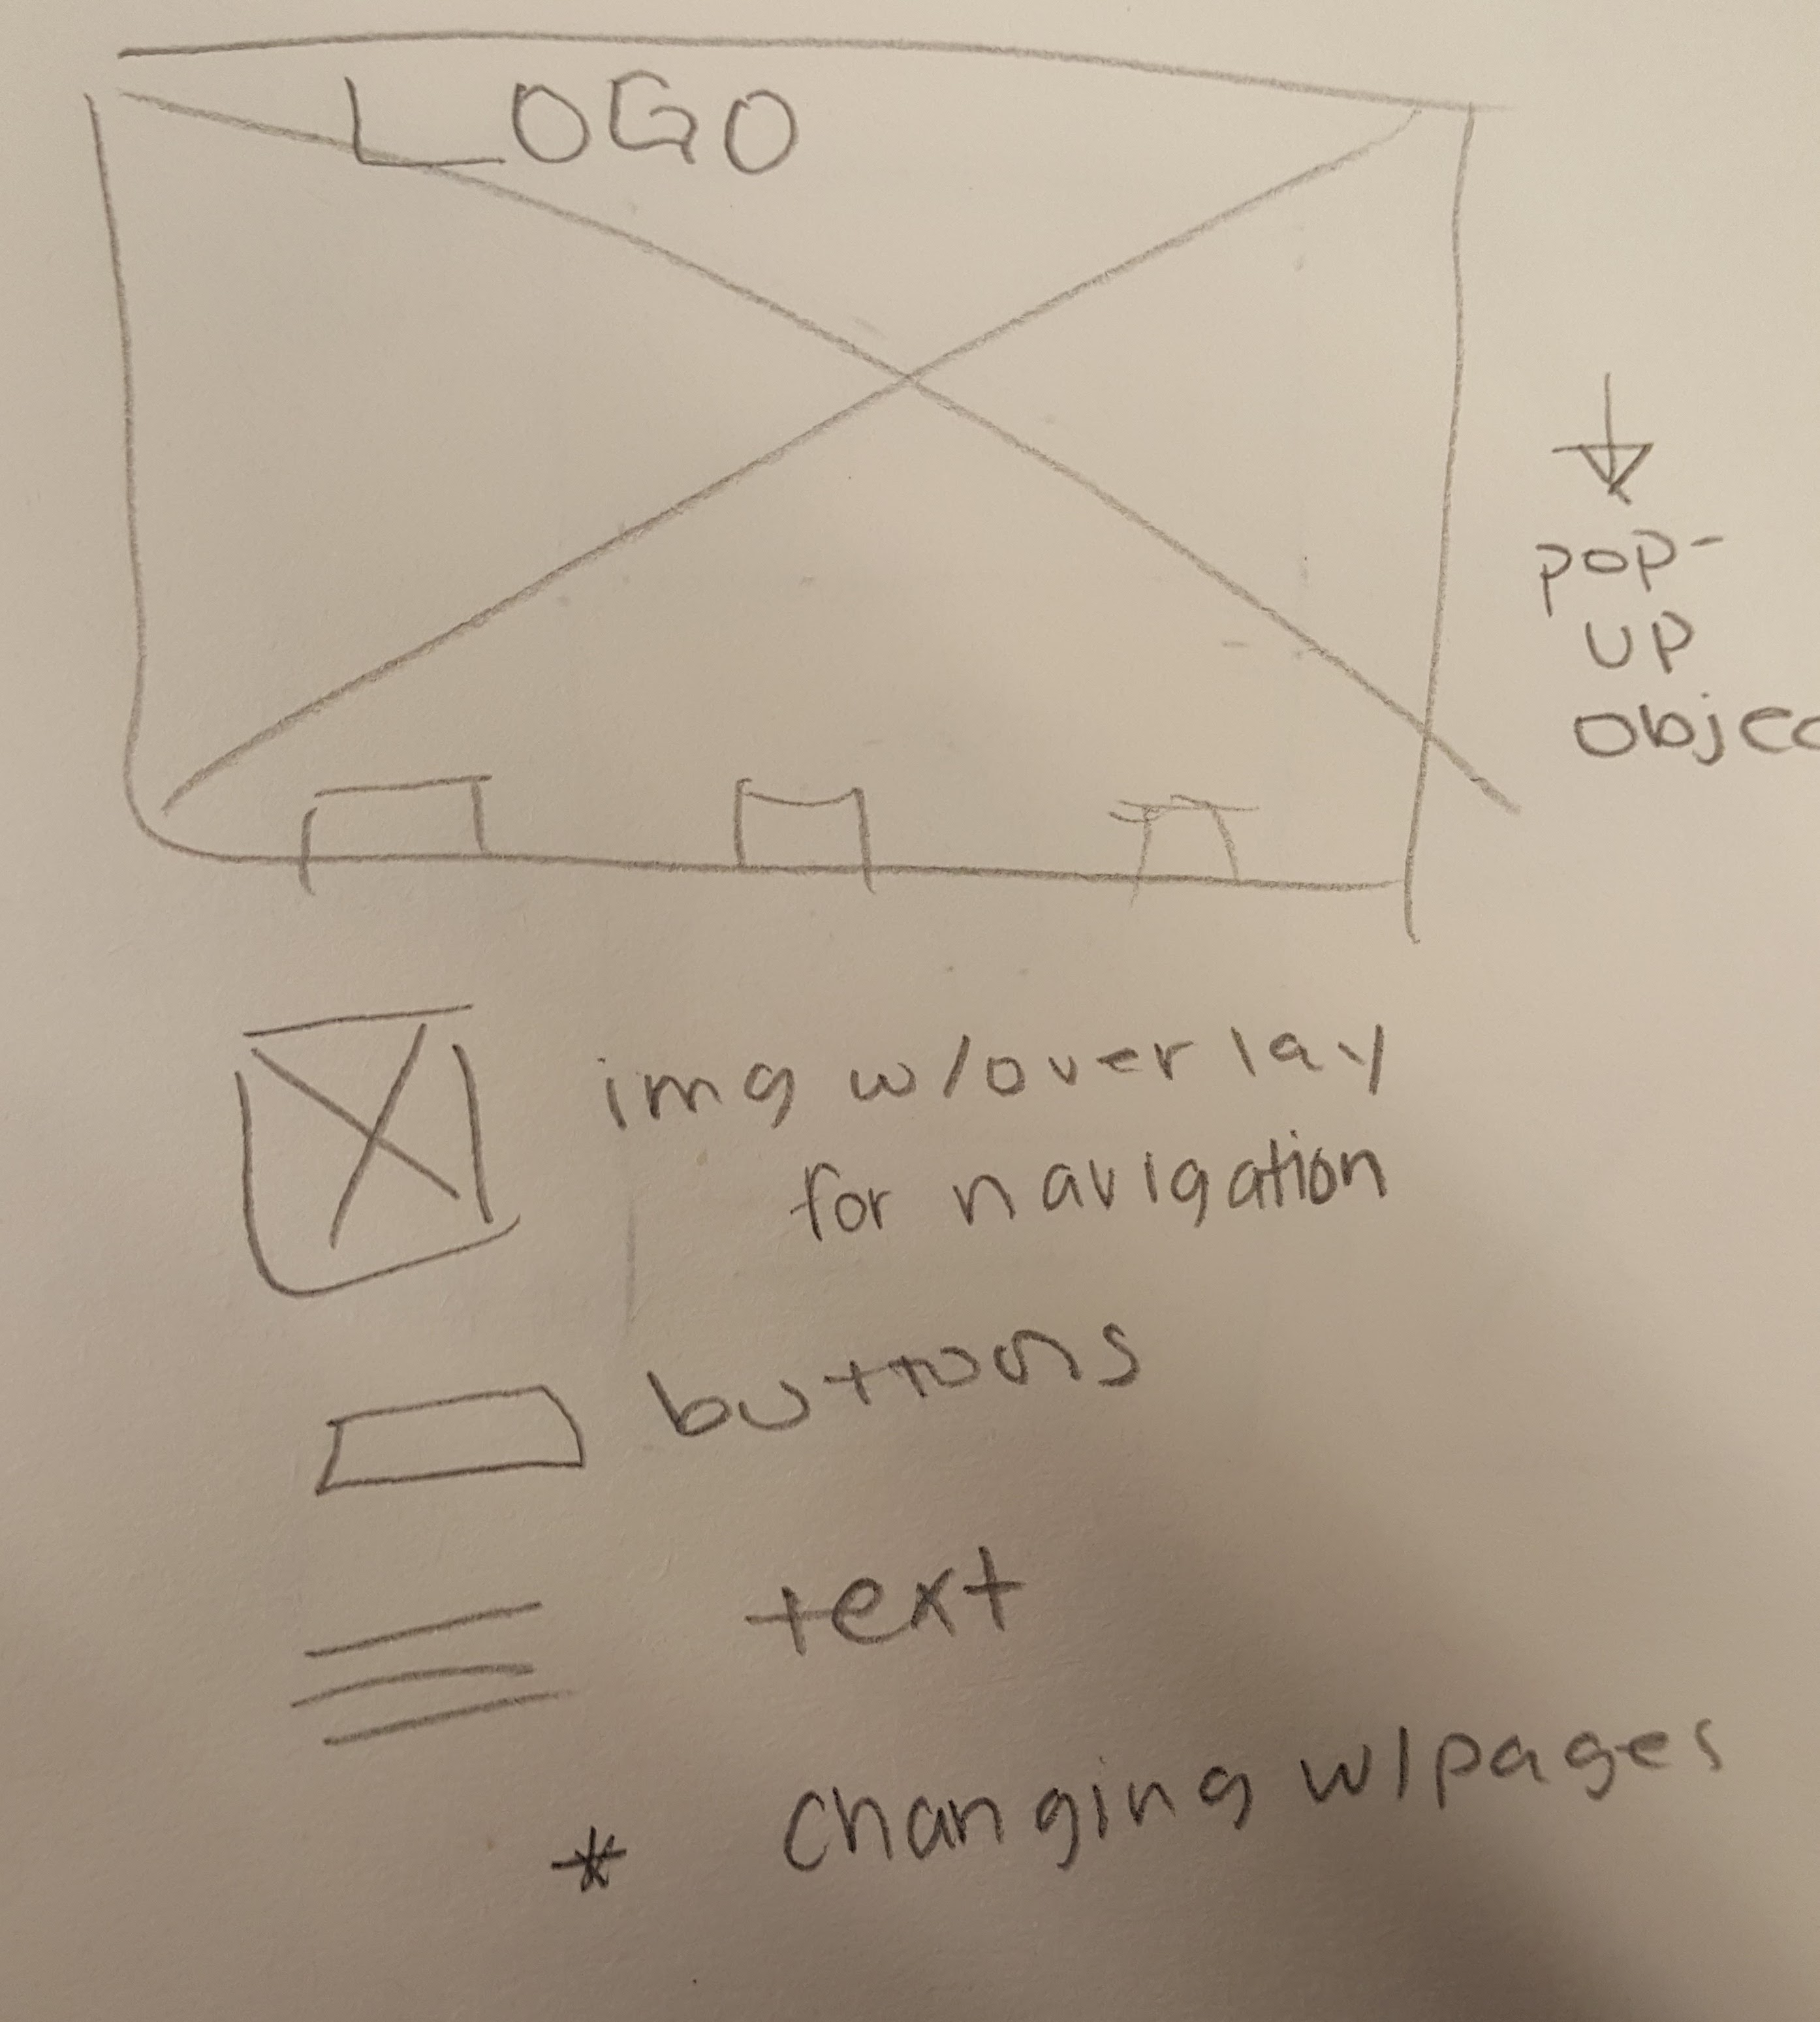 LOGO
pop-
up
objec
img w/overlay
for navigation
buttons
text
* changing w/pages